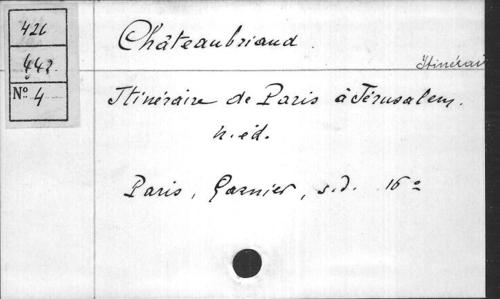 426
442
Nº 4
Châteaubriand.
Itinérai
Itinéraire de Paris à Jérusalem.
n. éd.
Paris, Garnier, s.d. 16º